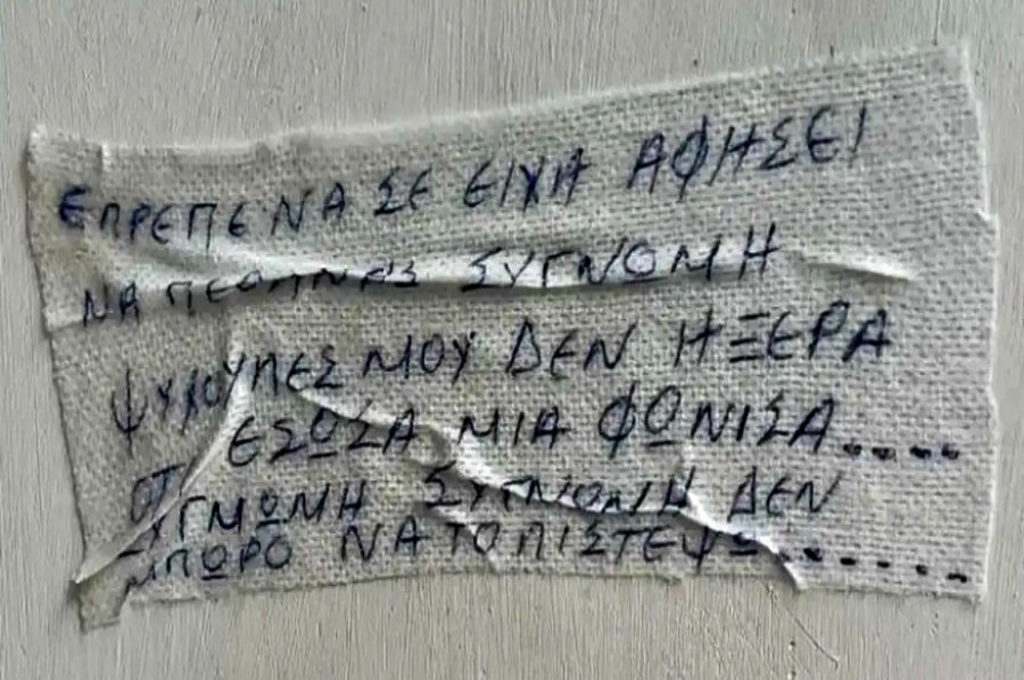 ΕΠΡΕΠΕ ΝΑ ΣΕ ΕΙΧΑ ΑΦΗΣΕΙ
ΝΑ ΠΕΘΑΝΕΙΣ ΣΥΓΝΩΜΗ
ΨΥΧΟΥΛΕΣ ΜΟΥ ΔΕΝ ΗΞΕΡΑ
ΟΤΙ ΕΣΩΣΑ ΜΙΑ ΦΩΝΙΣΑ.....
ΣΥΓΜΩΝΗ ΣΥΓΝΩΝΗ ΔΕΝ
ΜΠΩΡΟ ΝΑ ΤΟ ΠΙΣΤΕΨΩ.......